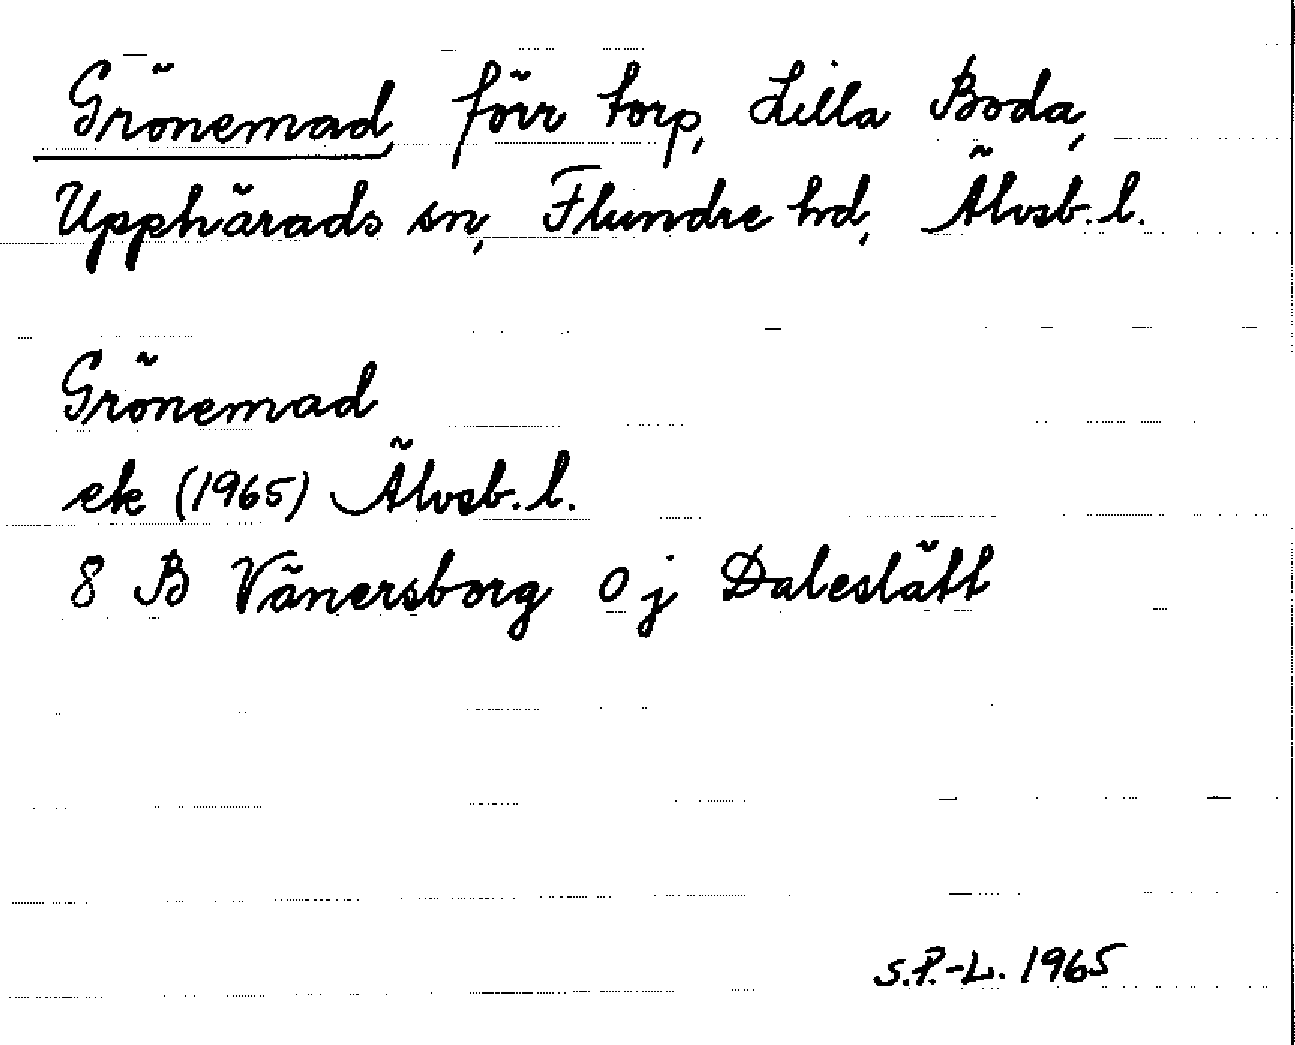 Grönemad, förr torp, Lilla Boda,
Upphärads sn, Flundre hd, Älvsb. l.
Grönemad
ek (1965) Älvsb. l.
8 B Vänersborg 0 j Daleslätt
S.P.-L. 1965